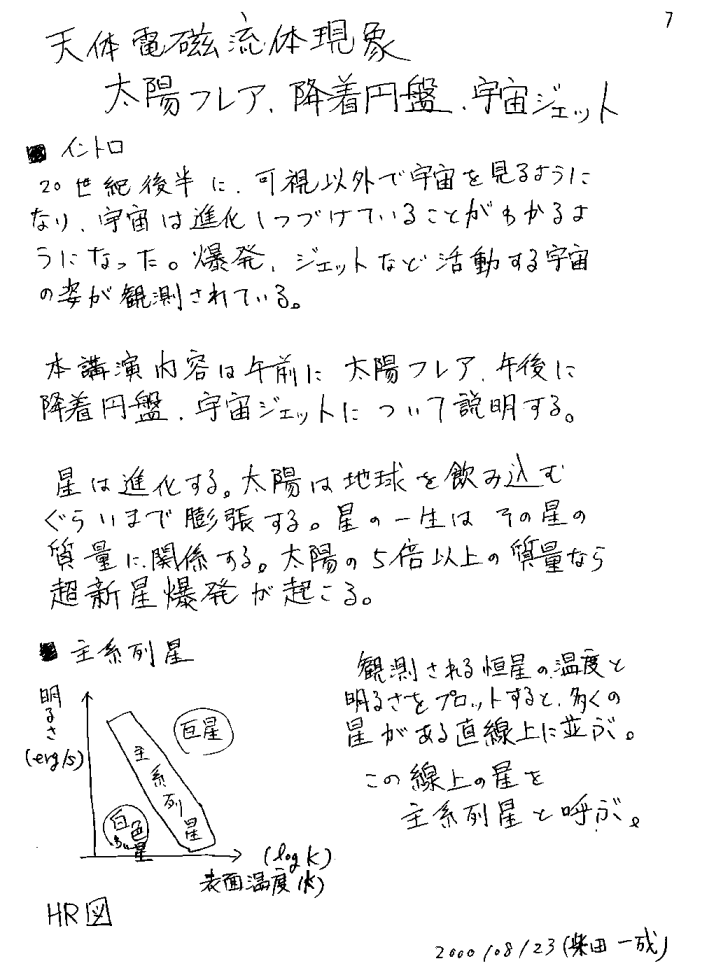 7
天体電磁流体現象
太陽フレア、降着円盤、宇宙ジェット
■ イントロ
20世紀後半に、可視以外で宇宙を見るように
なり、宇宙は進化しつづけていることがわかるよ
うになった。爆発、ジェットなど活動する宇宙
の姿が観測されている。
本講演内容は午前に太陽フレア、午後に
降着円盤、宇宙ジェットについて説明する。
星は進化する。太陽は地球を飲み込む
ぐらいまで膨張する。星の一生はその星の
質量に関係する。太陽の5倍以上の質量なら
超新星爆発が起こる。
■ 主系列星
観測される恒星の温度と
明るさをプロットすると、多くの
星がある直線上に並ぶ。
この線上の星を
主系列星と呼ぶ。
明るさ
(erg/s)
巨星
主系列星
白色わい星
(log K)
表面温度(K)
HR図
2000/08/23(柴田一成)